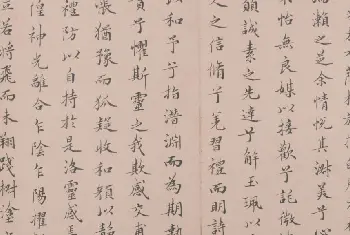 瀨之芝余情悅其淑美兮
怡無良媒以接歡兮託微
願誠素之先達兮解玉珮以
之信脩兮羌習禮而明詩
以和予兮指潛淵而為期執
實兮懼斯靈之我欺感交甫
悵猶豫而狐疑收和顏以靜
禮防以自持於是洛靈感焉
徨神光離合乍陰乍陽擢
若將飛而未翔踐椒塗